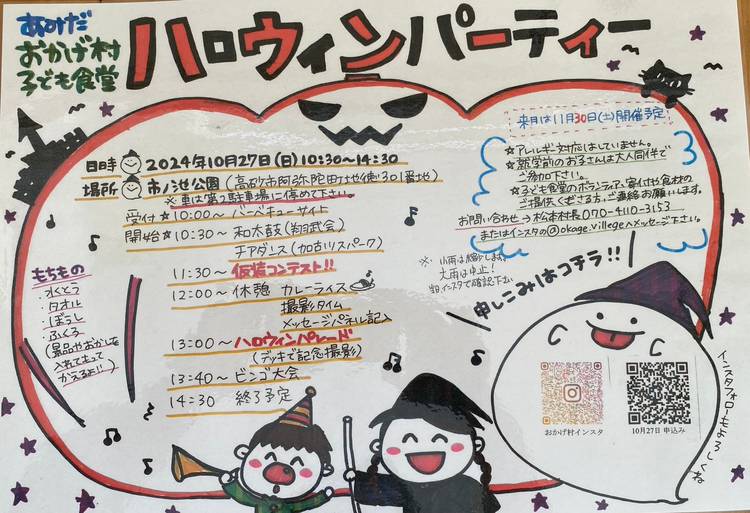 あみだ
おかげ村
子ども食堂
ハロウィンパーティー
来月は11月30日(土)開催予定
日時 2024年10月27日(日)10:30〜14:30
場所 市ノ池公園(高砂市阿弥陀町地徳301番地)
※車は第2駐車場に停めて下さい。
受付☆10:00〜バーベキューサイト
開始☆10:30〜和太鼓(翔武会)
チアダンス(加古川スパーク)
11:30〜仮装コンテスト!!
12:00〜休憩 カレーライス
撮影タイム
メッセージパネル記入
13:00〜ハロウィンパレード
(デッキで記念撮影)
13:40〜ビンゴ大会
14:30 終了予定
☆アレルギー対応はしていません。
☆就学前のお子さんは大人同伴で
ご参加下さい。
☆子ども食堂のボランティア、寄付や食材の
ご提供くださる方、ご連絡お願いします。
お問い合わせ→松本村長070-4110-3153
またはインスタの@okage.villegeへメッセージ下さい。
※小雨は決行します
大雨は中止!
当日、インスタで確認下さい
もちもの
・水とう
・タオル
・ぼうし
・ふくろ
(景品やおかしを
入れてもって
かえるよ!!)
申しこみはコチラ!!
おかげ村インスタ
10月27日 申込み
インスタフォローもよろしくね